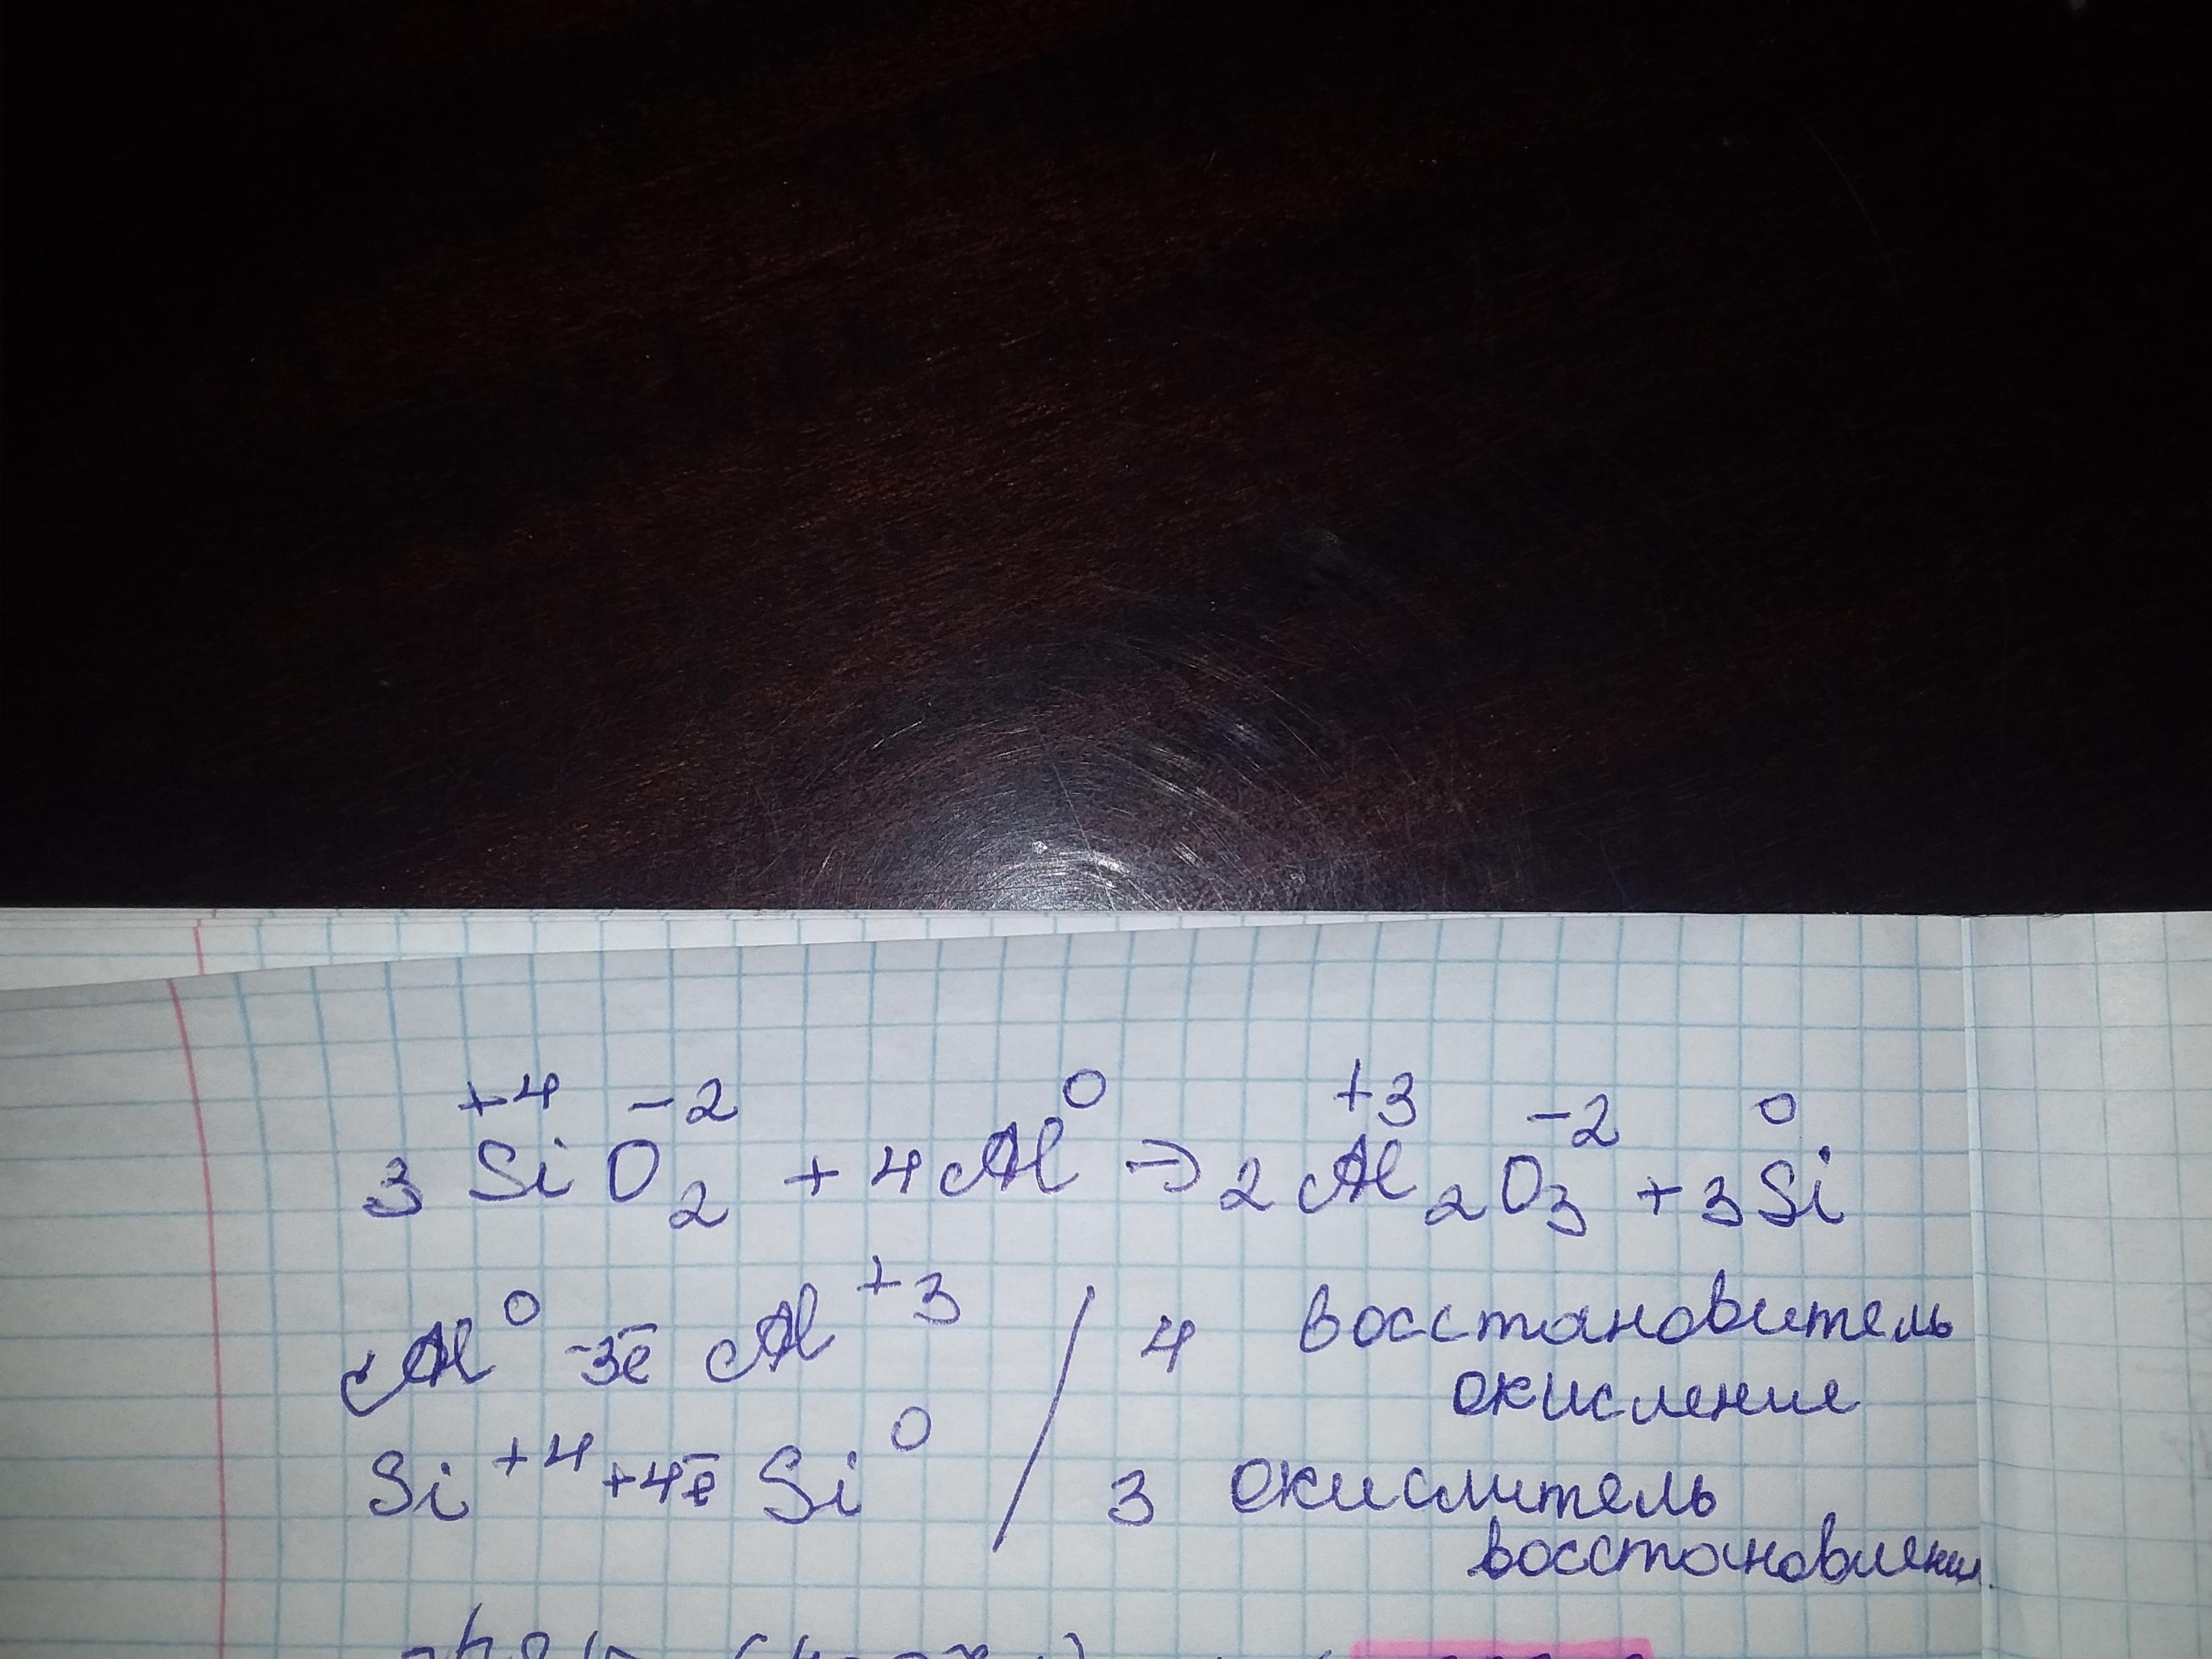 3 Si⁺⁴O₂⁻² + 4Al⁰ → 2Al₂⁺³O₃⁻² + 3Si⁰
Al⁰ -3ē Al⁺³ / 4 восстановитель
окисление
Si⁺⁴ +4ē Si⁰ / 3 окислитель
восстановление